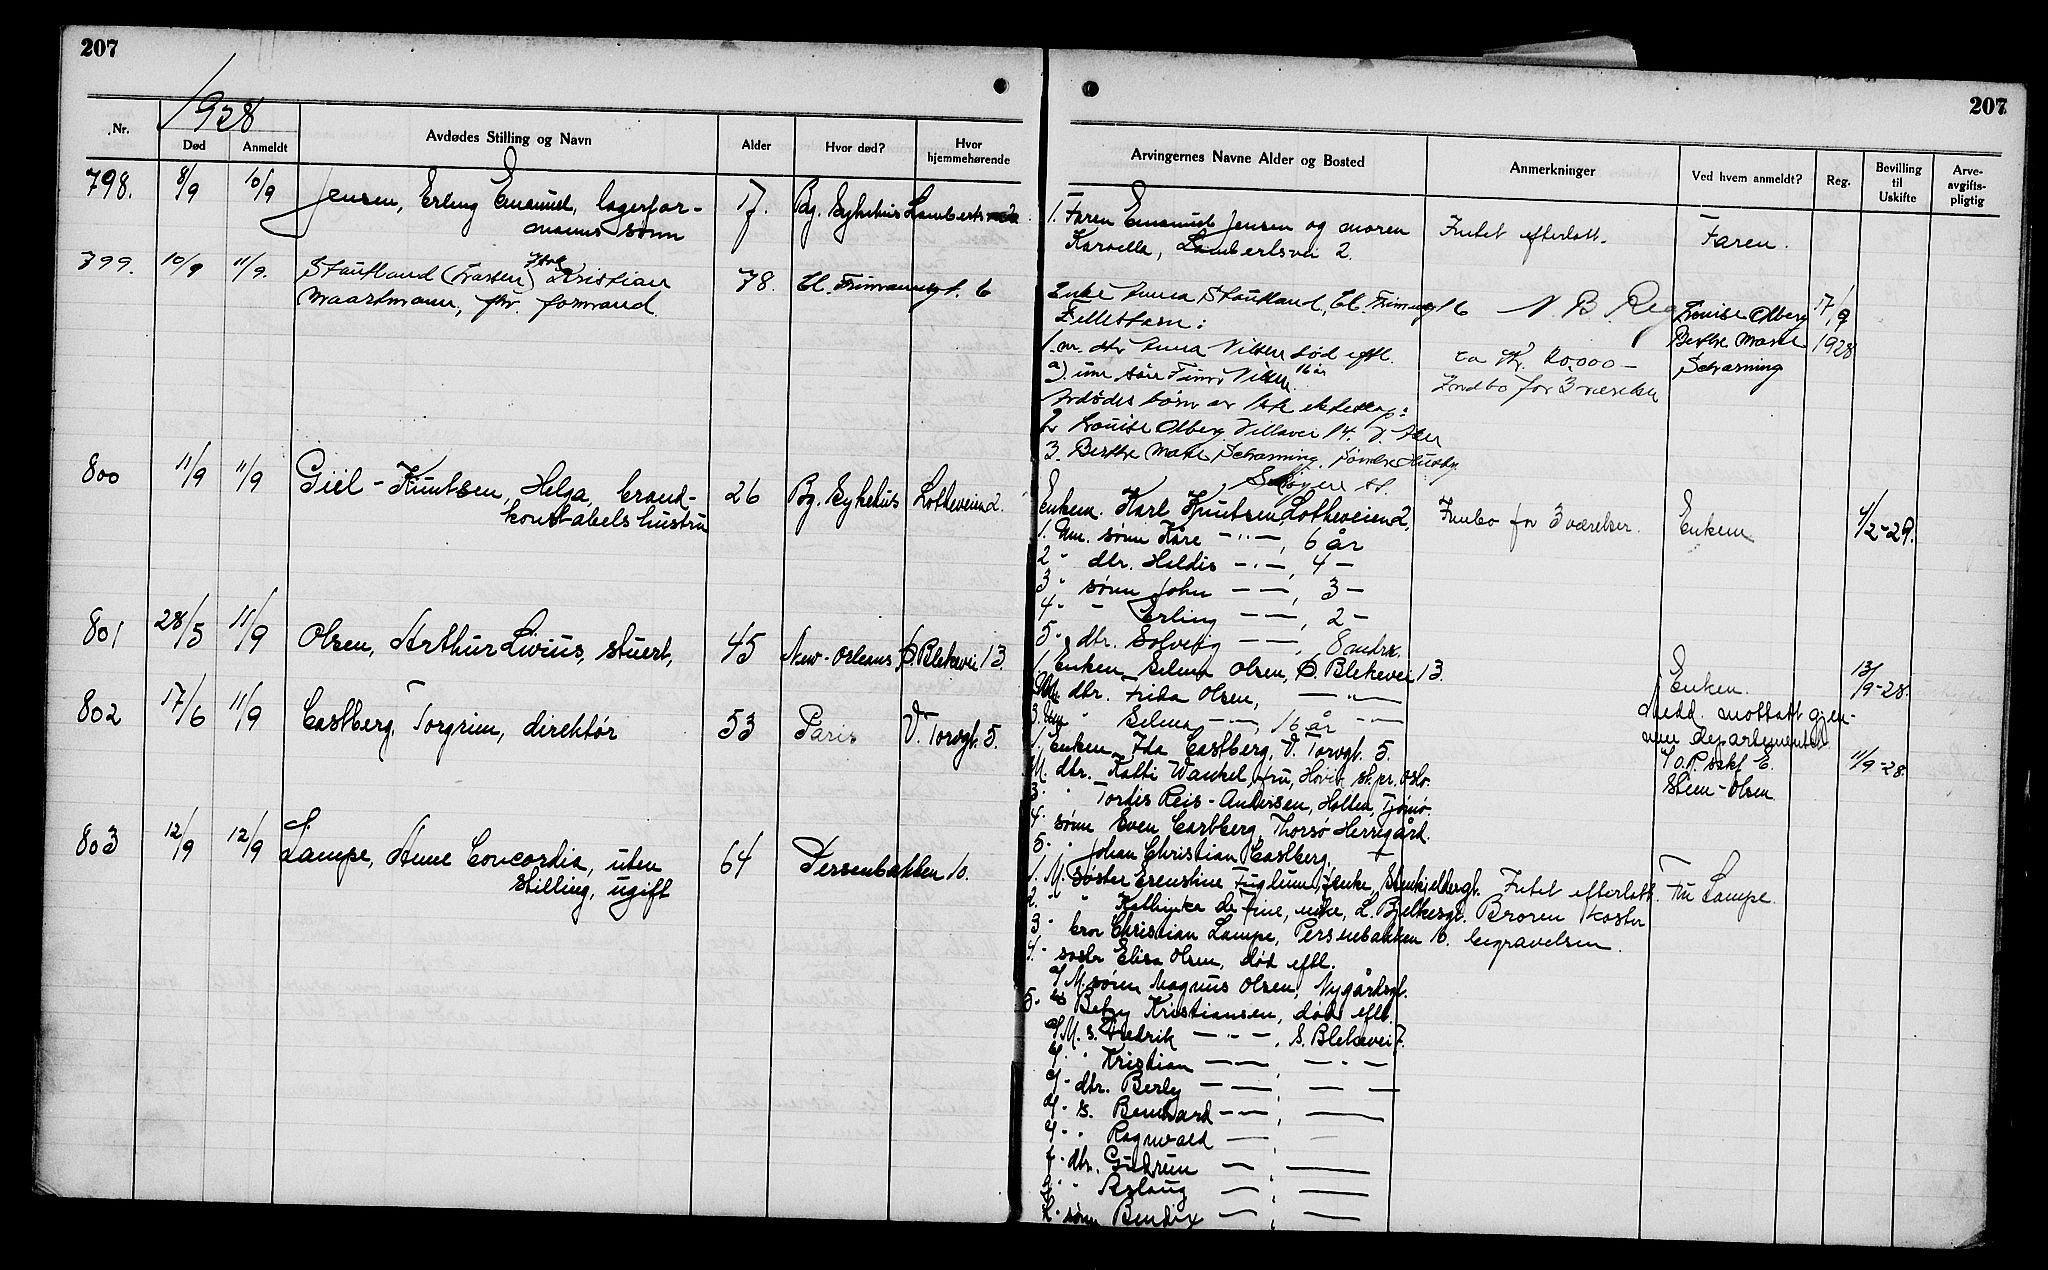 207
207
1928
Nr.
Død
Anmeldt
Avdødes Stilling og Navn
Alder
Hvor død?
Hvor hjemmehørende
Arvingernes Navne Alder og Bosted
Anmerkninger
Ved hvem anmeldt?
Reg.
Bevilling til Uskifte
Arve-avgifts-pligtig
798. 8/9 10/9 Jensen, Erling Emanuel, lagerfor-
manns sønn
17. Bg. Sykehus Lambertsvei 2
1. Faren Emanuel Jensen og moren
Karoella, Lambertsvei 2.
Intet efterlatt.
Faren.
799. 10/9 11/9. Stautland (Madsen) Kristian
Maartmann, fhv. formand
78. Cl. Frimannsgt. 6
Enke Anna Stautland, Cl. Frimansgt 6
Fellesbarn:
1. m. dtr Anna Nilsen død eftl.
a). um. søn Finn Nilsen 16 år
Avdødes børn av 1ste ekteskap:
2 Louise Olberg Villavei 14.
3. Berthe Marie Scharning, Søndre Huseby
Skøyen st.
N B. Reg
ca Kr. 20,000 -
Indbo for 3 værelser
Louise Olberg
Berthe Marie
Scharning
17/9
1928
800 11/9 11/9 Giil-Knutsen, Helga, brand-
konstabels hustru
26 Bg. Sykehus Lotheveien 2.
Enkem. Karl Knutsen, Lotheveien 2,
1. Um. sønn Kåre - " -, 6 år
2 " dtr. Haldis - " -, 4 -
3 " sønn John - -, 3 -
4 - - Erling - -, 2 -
5 - dtr. Solveig - -, 8 mdr.
Innbo for 3 værelser.
Enkem
4/2-29.
801 28/5 11/9 Olsen, Arthur Livius, stuert,
45 New-Orleans, S. Blekevei 13.
1. Enken Selma Olsen, S. Blekevei 13.
M. dtr. Frida Olsen, - " -
3. Um " Selma - -, 16 år - " -
Enken.
Medd. mottatt gjen-
nem departementet
13/9-28.
802 17/6 11/9 Castberg, Torgrim, direktør
53 Paris V. Torvgt. 5.
1. Enken Ida Castberg, V. Torvgt. 5.
M. dtr. Katti Wankel, fru, Høvik st. pr. Oslo.
3 " Tordis Reis-Andersen, Holten, Tjømø.
4. sønn Sven Castberg, Thorsø Herregård.
5. " Johan Christian Castberg, -
O.R. sakf. E.
Steen-Olsen
11/9-28.
803 12/9 12/9 Lampe, Anne Concordia, uten
stilling, ugift
64 Persenbakken 10.
1. M. søster Ernstine Fuglum, enke, Stenkjeldergt.
2. " " Kathinka de Fine, enke, L. Bjelkesgt.
3 - bror Christian Lampe, Persenbakken 10.
4. - søster Elisa Olsen, død eftl.
a/ M. sønn Magnus Olsen, Nygårdsgt.
5. Betzy Kristiansen, død eftl.
a/ M. s. Fredrik - " -, S. Blekevei 7.
" Kristian - -, - " -
dtr. Berly - -, - -
s. Bernhard - -, -
" Ragnvald -
dtr. Gudrun -, -
" Aslaug -, -
sønn Bendix -, -
Intet efterlatt.
Broren koster
begravelsen.
Fru Lampe.